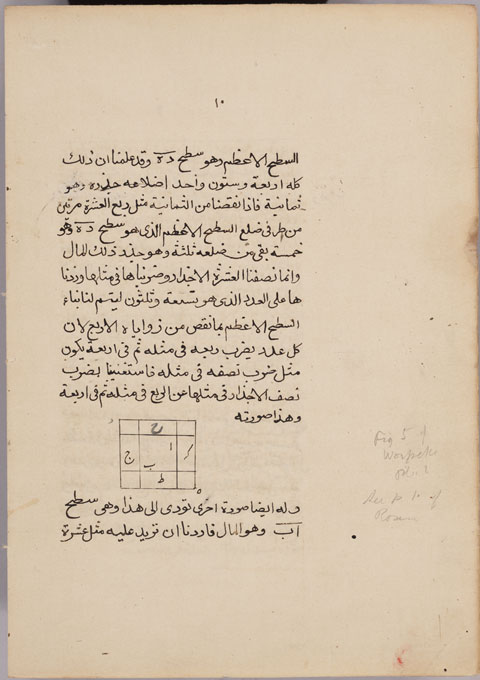 ١٠
السطح الاعظم وهو سطح ده وقد علمنا ان ذلك
كله اربعة وستون واحد اضلاعه جذره وهو
ثمانية فاذا نقصنا من الثمانية مثل ربع العشرة مرتين
من طرفى ضلع السطح الاعظم الذى هو سطح ده وهو
خمسة بقى من ضلعه ثلثة وهو جذر ذلك المال
وانما نصفنا العشرة الاجذار وضربناها فى مثلها وزدنا
ها على العدد الذى هو تسعة وثلثون ليتم لنا بناء
السطح الاعظم بما نقص من زواياه الاربع لان
كل عدد يضرب ربعه فى مثله ثم فى اربعة يكون
مثل ضرب نصفه فى مثله فاستغنينا بضرب
نصف الاجذار فى مثلها عن الربع فى مثله ثم فى اربعة
وهذا صورته
د
ح
ج ب ا ك
ط
ه
وله ايضا صورة اخرى تؤدى الى هذا وهى سطح
اب وهو المال فاردنا ان نزيد عليه مثل عشرة
Fig 5 of
See p. 10 of
Rosen